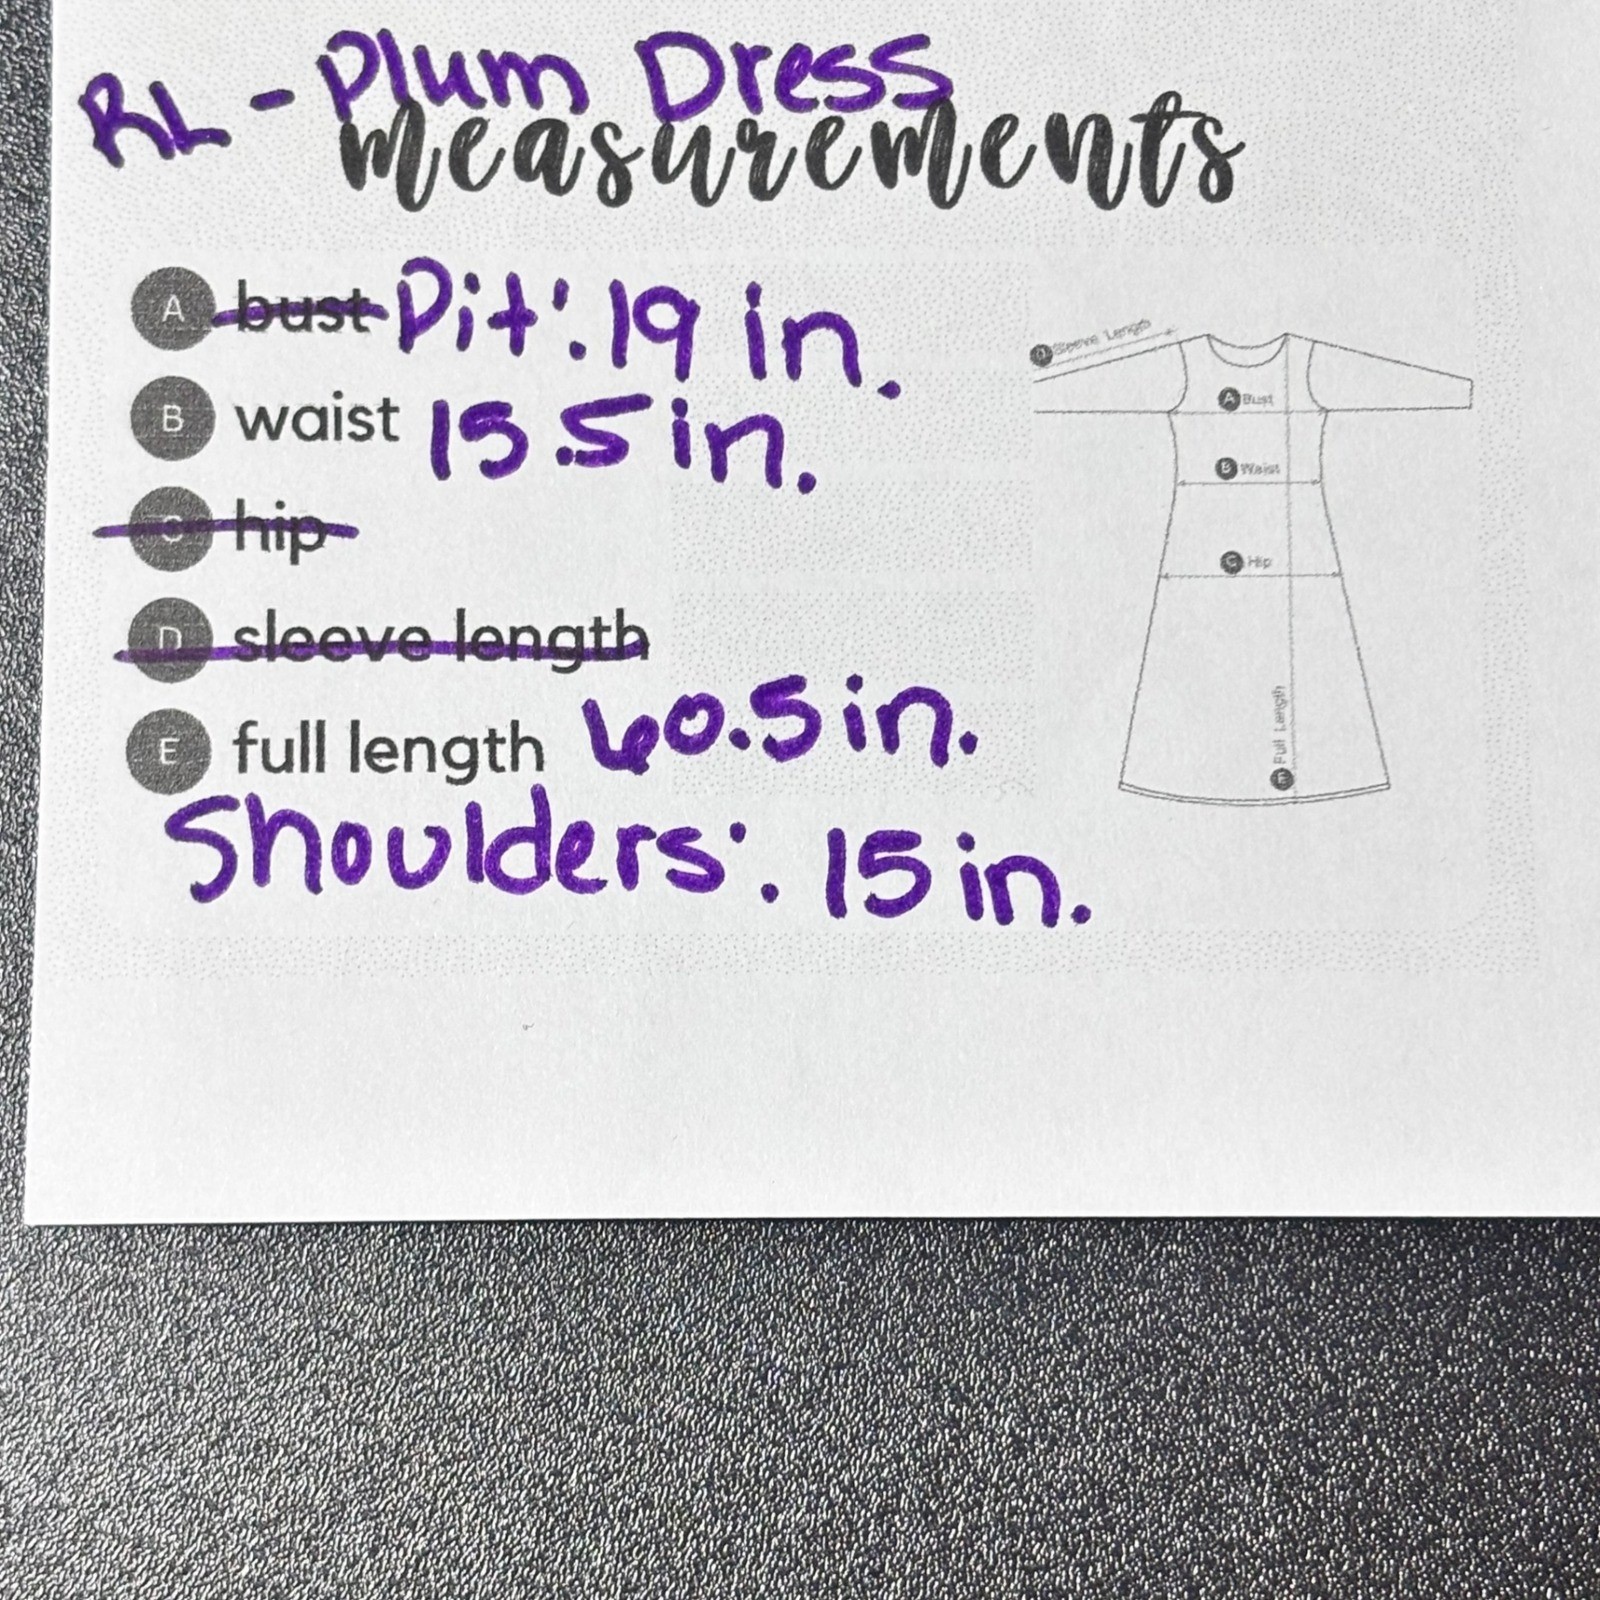 RL - Plum Dress
measurements
A bust Pit: 19 in.
B waist 15.5 in.
C hip
D sleeve length
E full length 60.5 in.
Shoulders: 15 in.
D Sleeve Length
A Bust
B Waist
C Hip
E Full Length